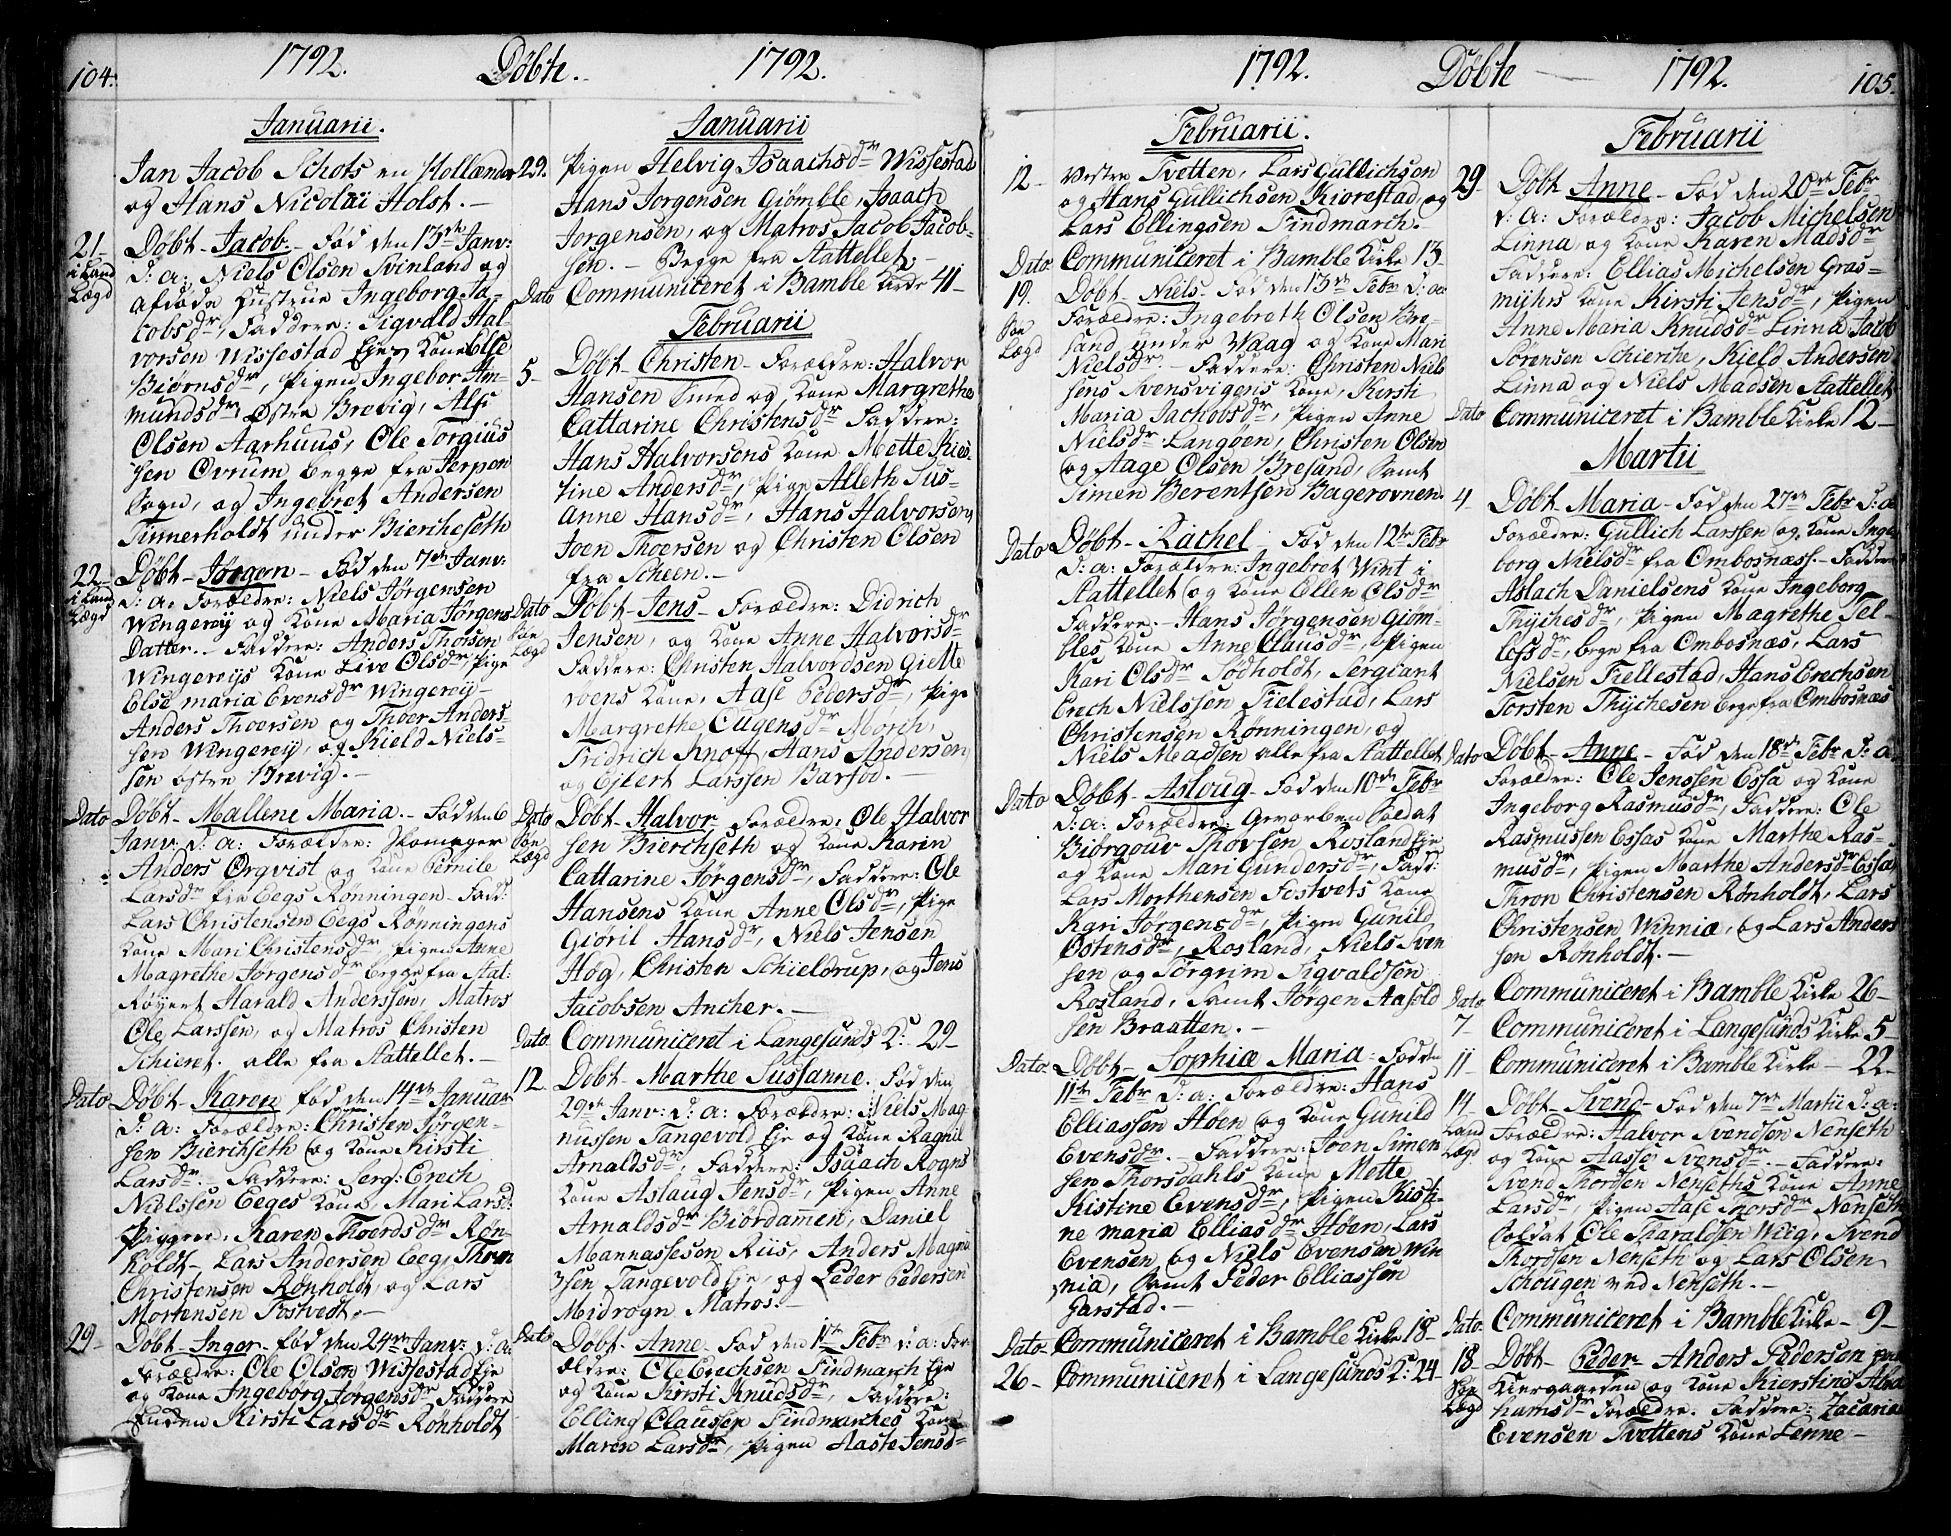 104.
1792. Döbte. 1792.
Januarii.
Jan Jacob Schots en Hollænder
og Hans Nicolai Holst. -
21- Döbt - Jacob. - Föd den 13de Janv:
i Land d: a: Niels Olsen Svinland og
Lægd afdøde Hustrue Ingeborg Ja-
cobsdr, Faddere: Sigvald Hal-
vorsen Wissestad Ejes Kone Else
Biørnsdr, Pigen Ingebor Am-
mundsdr Østre Brevig, Alf
Olsen Aarhuus, Ole Torgius
sen Øvrum begge fra Jerpen
Sogn, og Ingebret Andersen
Tinnerholdt under Biercheseth
22- Döbt - Jørgen - Föd den 7de Janv:
i Land d: a: Forældre: Niels Jörgensen
Lægd Wingereij og Kone Maria Jörgens
Datter. - Faddere: Anders Thorsen
Wingereijs Kone Live Olsdr, Pige
Else maria Evensdr Wingereij -
Anders Thoersen og Thoer Anders-
sen Wingereij, og Kield Niels-
sen østre Brevig. -
Dato Döbt - Mallene Maria. - Föd den 6
Janv: d: a: Forældre: Skomager
Anders Örqvist og Kone Pernile
Larsdr fra Eegs Rönningen. Fadd:
Lars Christensen Eegs Rönningens
Kone Mari Christensdr, Pigen Anne
Magrethe Jörgensdr begge fra Stat:
Harald Anderssen, Matros
Ole Larssen, og Matros Christen
Schieret. alle fra Stattellet. -
Dato Döbt - Karen föd den 14de Januar
d: a: Forældre: Christen Jörgen-
sen Bierchseth og Kone Kirsti
Larsdr. - Faddere: Serg: Erech
Nielssen Eeges Kone, Mari Larsd:
Pigen, Karen Thoersdr Rön-
holdt - Lars Andersen Eeg, Thron
Christensen Rönholdt, og Lars
Mortensen Fostvedt. -
29- Döbt - Inger - föd den 24de Janv: d: a:
Forældre: Ole Olsen Wissestad Eje
og Kone Ingebörg Jorgensdr Faddere
Kirsti Larsdr Rönholdt
Januarii
29. Pigen Helvig Isaachsdr Wissestad
Hans Jorgensen Giömble, Isaach
Jorgensen, og Matros Jacob Jacob-
sen. - Begge fra Stattellet. -
Dato Communiceret i Bamble Kirke 41-
Februarii
5- Döbt - Christen - Forældre: Halvor
Hansen Smed og Kone Margrethe
Cattarine Christensdr Faddere:
Hans Halvorsens Kone Mette Kies-
tine Andersdr, Pige Alleth Sus-
anne Hansdr, Hans Halvorsen,
Joen Thoersen og Christen Olsen
fra Scheen. -
Dato Döbt - Jens - Forældre: Didrich
Söe Jensen, og Kone Anne Halvorsdr
Lægd Faddere: Christen Halvordsen Giette
roens Kone, Aase Pedersdr, Pige
Margrethe Eugensdr Morch,
Fridrich Knoff, Hans Andersen
og Ejlert Larssen Barfod. -
Dato Döbt - Halvor Forældre: Ole Halvor
Söe sen Bierchseth og Kone Karin
Lægd Cattarine Jörgensdr, Faddere: Ole
Hansens Kone Anne Olsdr, Pige
Giöril Hansdr, Niels Jensen
Hög, Christen Schieldrup, og Jens
Jacobsen Ancher. -
Dato Communiceret i Langesunds K: 29-
12 Döbt - Marthe Sussanne. Föd den
29de Janv: d: a: Forældre: Niels Mag-
nussen Tangevold Eje og Kone Ragnil
Arnaldsdr, Faddere: Isaach Rogns
Kone Aslaug Jensdr, Pigen Anne
Arnaldsdr Biördammen, Daniel
Mannassesen Riis, Anders Magnu
ssen Tangevold Eje, og Peder Pedersen
Midrogn Matros. -
Dato Döbt - Anne - Föd den 1te Febr d: a: For-
ældre: Ole Erechsen Findmarch Eje
og Kone Kirsti Knudsdr, Faddere:
Elling Claussen Findmarches Kone
Maren Larsdr, Pigen Aaste Jensd=
1792. Döbte 1792. 105.
Februarii.
12- Vestre Tvetten, Lars Gullichsen
og Hans Gullichsen Kiorestad, og
Lars Ellingsen Findmarch. -
Dato Communiceret i Bamble Kirke 13-
19. Döbt - Niels - Föd den 13de Febr d: a:
Söe Forældre: Ingebreth Olsen Bre-
Lægd sand under Waag og Kone Mari
Nielsdr. - Faddere: Christen Niel
sens Svensvigens Kone, Kirsti
Maria Jachobsdr, Pigen Anne
Nielsdr Langöen, Christen Olsen
og Aage Olsen Bresund, samt
Simen Berentsen Bagerovnen.
Dato Döbt - Rachel - Föd den 12te Febr
d: a: Forældre: Ingebret Wint i
Stattellet og Kone Ellen Olsdr
Faddere. - Hans Jørgensen Giöm-
bles Kone Anne Clausdr, Pigen
Kari Olsdr Södholdt, Sergiant
Erech Nielssen Fielestad, Lars
Christensen Rönningen, og
Niels Madsen alle fra Stattellet
Dato Döbt - Asloug - Föd den 10de Febr
d: a: Forældre: Gevorben Soldat
Biörgouv Thovsen Rosland Eje
og Kone Mari Gundersdr, Fadd:
Lars Morthensen Fostvets Kone
Kari Jörgensdr, Pigen Gunild
Östensdr, Rosland, Niels Sven
sen og Sörgrim Sigvaldsen
Rosland, samt Jørgen Aasold
sen Braatten. -
Dato Döbt - Sophiæ Maria - Föd den
11te Febr d: a: Forældre: Hans
Elliassen Höen og Kone Gunild
Evensdr. - Faddere: Joen Simen
sen Thorsdahls Kone Mette
Kistine Evensdr, Pigen Kisti-
ne maria Elliasdr Höen, Lars
Evensen og Niels Evensen Win
nia, samt Peder Elliassen
Garstad. -
Dato Communiceret i Bamble Kirke 18-
26- Communiceret i Langesunds K: 24-
Februarii
29. Döbt Anne - Föd den 20de Febr
d: a: Forældre: Jacob Michelsen
Linna, og Kone Karen Madsdr
Faddere: Ellias Michelsen Gras=
mijhrs Kone Kirsti Jensdr, Pigen
Anne Maria Knudsdr Linna, Jacob
Sörensen Schierche, Kield Andersen
Linna og Niels Madsen Stattellet
Dato Communiceret i Bamble Kirke 12-
Martii
4 Döbt Maria - Föd den 27de Febr d: a:
Forældre: Gullich Larssen og Kone Inge
borg Nielsdr fra Ombosnæss. - Faddere
Aslach Danielsens Kone Ingeborg
Thijchesdr, Pigen Magrethe Tel-
lefsdr, bege fra Ombosnæs, Lars
Nielsen Fiellestad, Hans Erechsen
Torsten Thijchesen bege fra Ombosnæs
Dato Döbt - Anne - Föd den 18de Febr d: a:
Forældre: Ole Jenssen Essa og Kone
Ingeborg Rasmusdr, Faddere: Ole
Rasmussen Essas Kone Marthe Ras-
musdr, Pigen Marthe Andersdr Essa
Thron Christensen Rönholdt, Lars
Christensen Winniæ, og Lars Anders
sen Rönholdt. -
Dato Communiceret i Bamble Kirke 26-
7- Communiceret i Langesunds Kirke 5-
11- Communiceret i Bamble Kirke - 22-
14- Döbt - Svend - Föd den 7de Martii d: a:
Land Forældre: Halvor Svendsen Nenseth
Lægd og Kone Aasse Svensdr. - Faddere:
Svend Thorsen Nenseths Kone Anne
Larsdr, Pigen Aase Thorsdr Nenseth
Soldat Ole Tharaldsen Wiig, Svend
Thordsen Nenseth og Lars Olsen
Schougen ved Nenseth. -
Dato Communiceret i Bamble Kirke - 9-
18- Döbt - Peder - Anders Pedersen
Söe Kiergaarden og Kone Kierstine Abra
Lægd hamsdr Forældre. Faddere: Zacarias
Evensen Tvettens Kone Lenne -